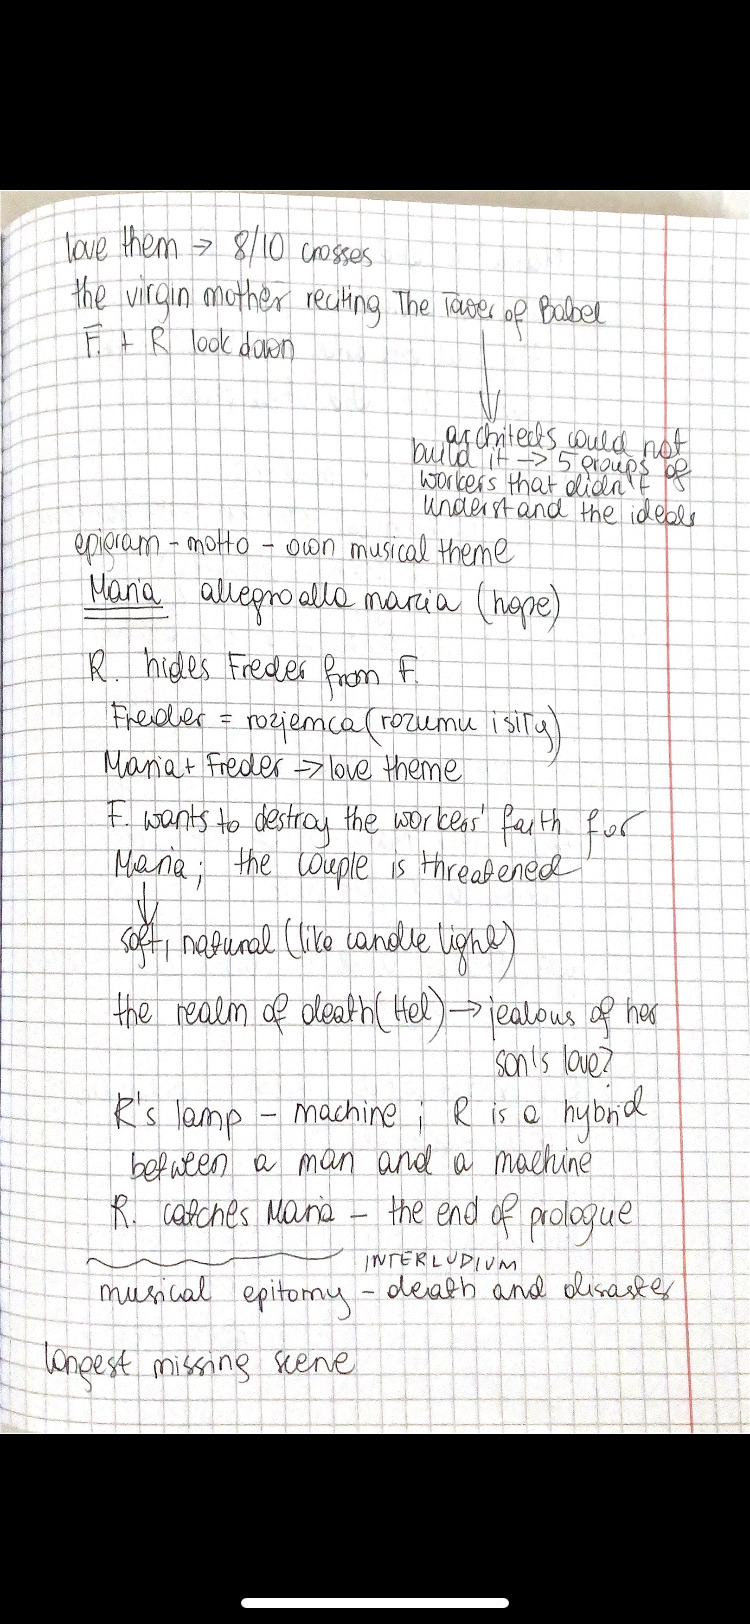 love them → 8/10 crosses
the virgin mother reciting The Tower of Babel
F. + R look down
architects could not
build it → 5 groups of
workers that didn't
understand the ideals
epigram - motto - own musical theme
Maria allegro alla marcia (hope)
R. hides Freder from F.
Freder = rozjemca (rozumu i siły)
Maria + Freder → love theme
F. wants to destroy the workers' faith for
Maria; the couple is threatened
soft, natural (like candle light)
the realm of death (Hel) → jealous of her
son's love?
R's lamp - machine; R is a hybrid
between a man and a machine
R. catches Maria - the end of prologue
INTERLUDIUM
musical epitomy - death and disaster
longest missing scene